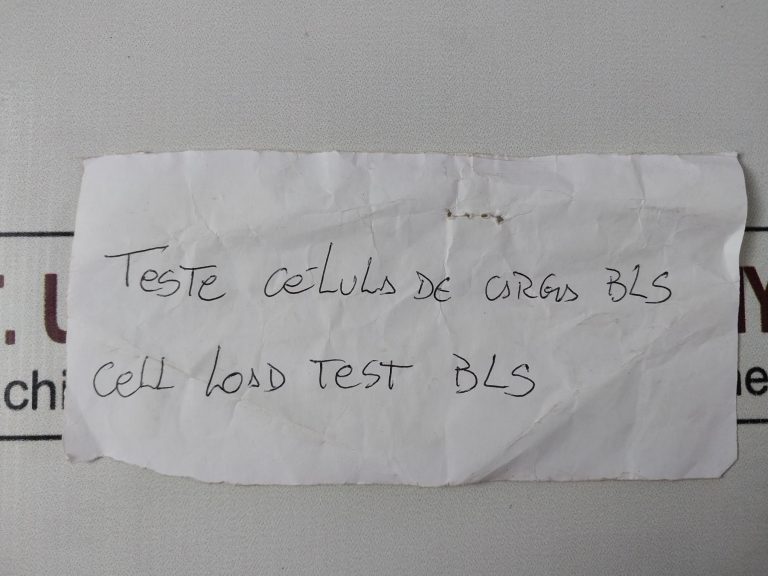 TESTE CÉLULA DE CARGA BLS
CELL LOAD TEST BLS
chi